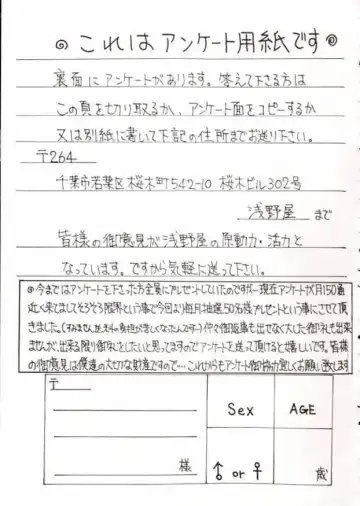 ◎これはアンケート用紙です◎
裏面にアンケートがあります。答えて下さる方は
この頁を切り取るか、アンケート面をコピーするか
又は別紙に書いて下記の住所までお送り下さい。
〒264
千葉市若葉区桜木町542-10 桜木ビル302号
浅野屋 まで
皆様の御意見が浅野屋の原動力・活力と
なっています。ですから気軽に送って下さい。
◎今まではアンケートを下さった方全員にプレゼントしていたのですが…現在アンケートが月150通
近く来てましてそろそろ限界という事で今回より毎月抽選50名様プレゼントという事にさせて頂
きました。(すみません、送料の負担が苦しくなったんですー)仲々御返事も出せなく大した御礼も出来
ませんが、出来る限り御礼をしたいと思ってますのでアンケートを送って頂けると嬉しいです。皆様
の御意見は僕達の大切な財産ですので…これからもアンケート御協力宜しくお願い致します
〒
様
Sex
AGE
♂ or ♀
歳